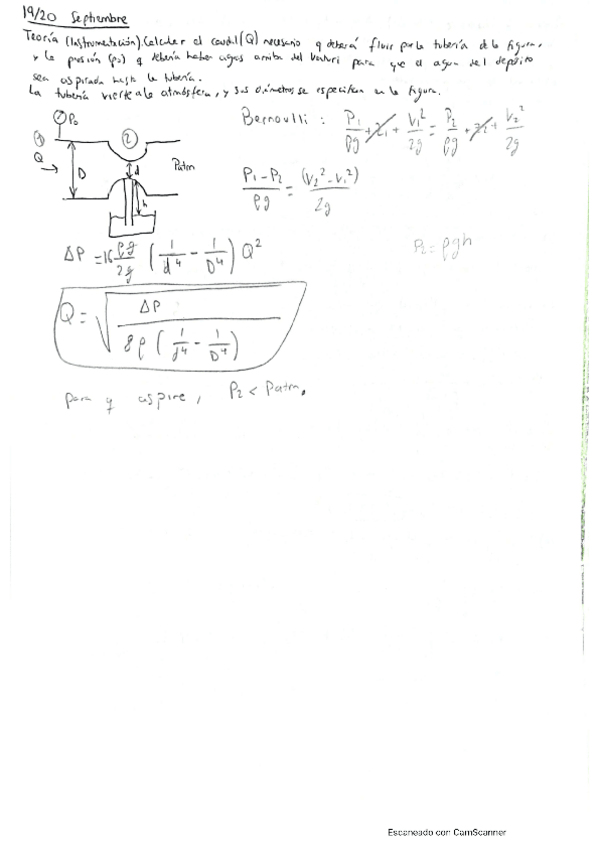 19/20 Septiembre
Teoría (Instrumentación). Calcular el caudal (Q) necesario q deberá fluir por la tubería de la figura,
y la presión (p0) q debería haber aguas arriba del Venturi para que el agua del depósito
sea aspirada hasta la tubería.
La tubería vierte a la atmósfera, y sus diámetros se especifican en la figura.
P0
1
Q
D
2
d
h
Patm
Bernoulli : P1/ρg + z1 + V1²/2g = P2/ρg + z2 + V2²/2g
(P1 - P2)/ρg = (V2² - V1²)/2g
ΔP = 16 ρg/2g (1/d⁴ - 1/D⁴) Q²
P2 = ρgh
Q = √(ΔP / 8ρ (1/d⁴ - 1/D⁴))
para q aspire, P2 < Patm.
Escaneado con CamScanner